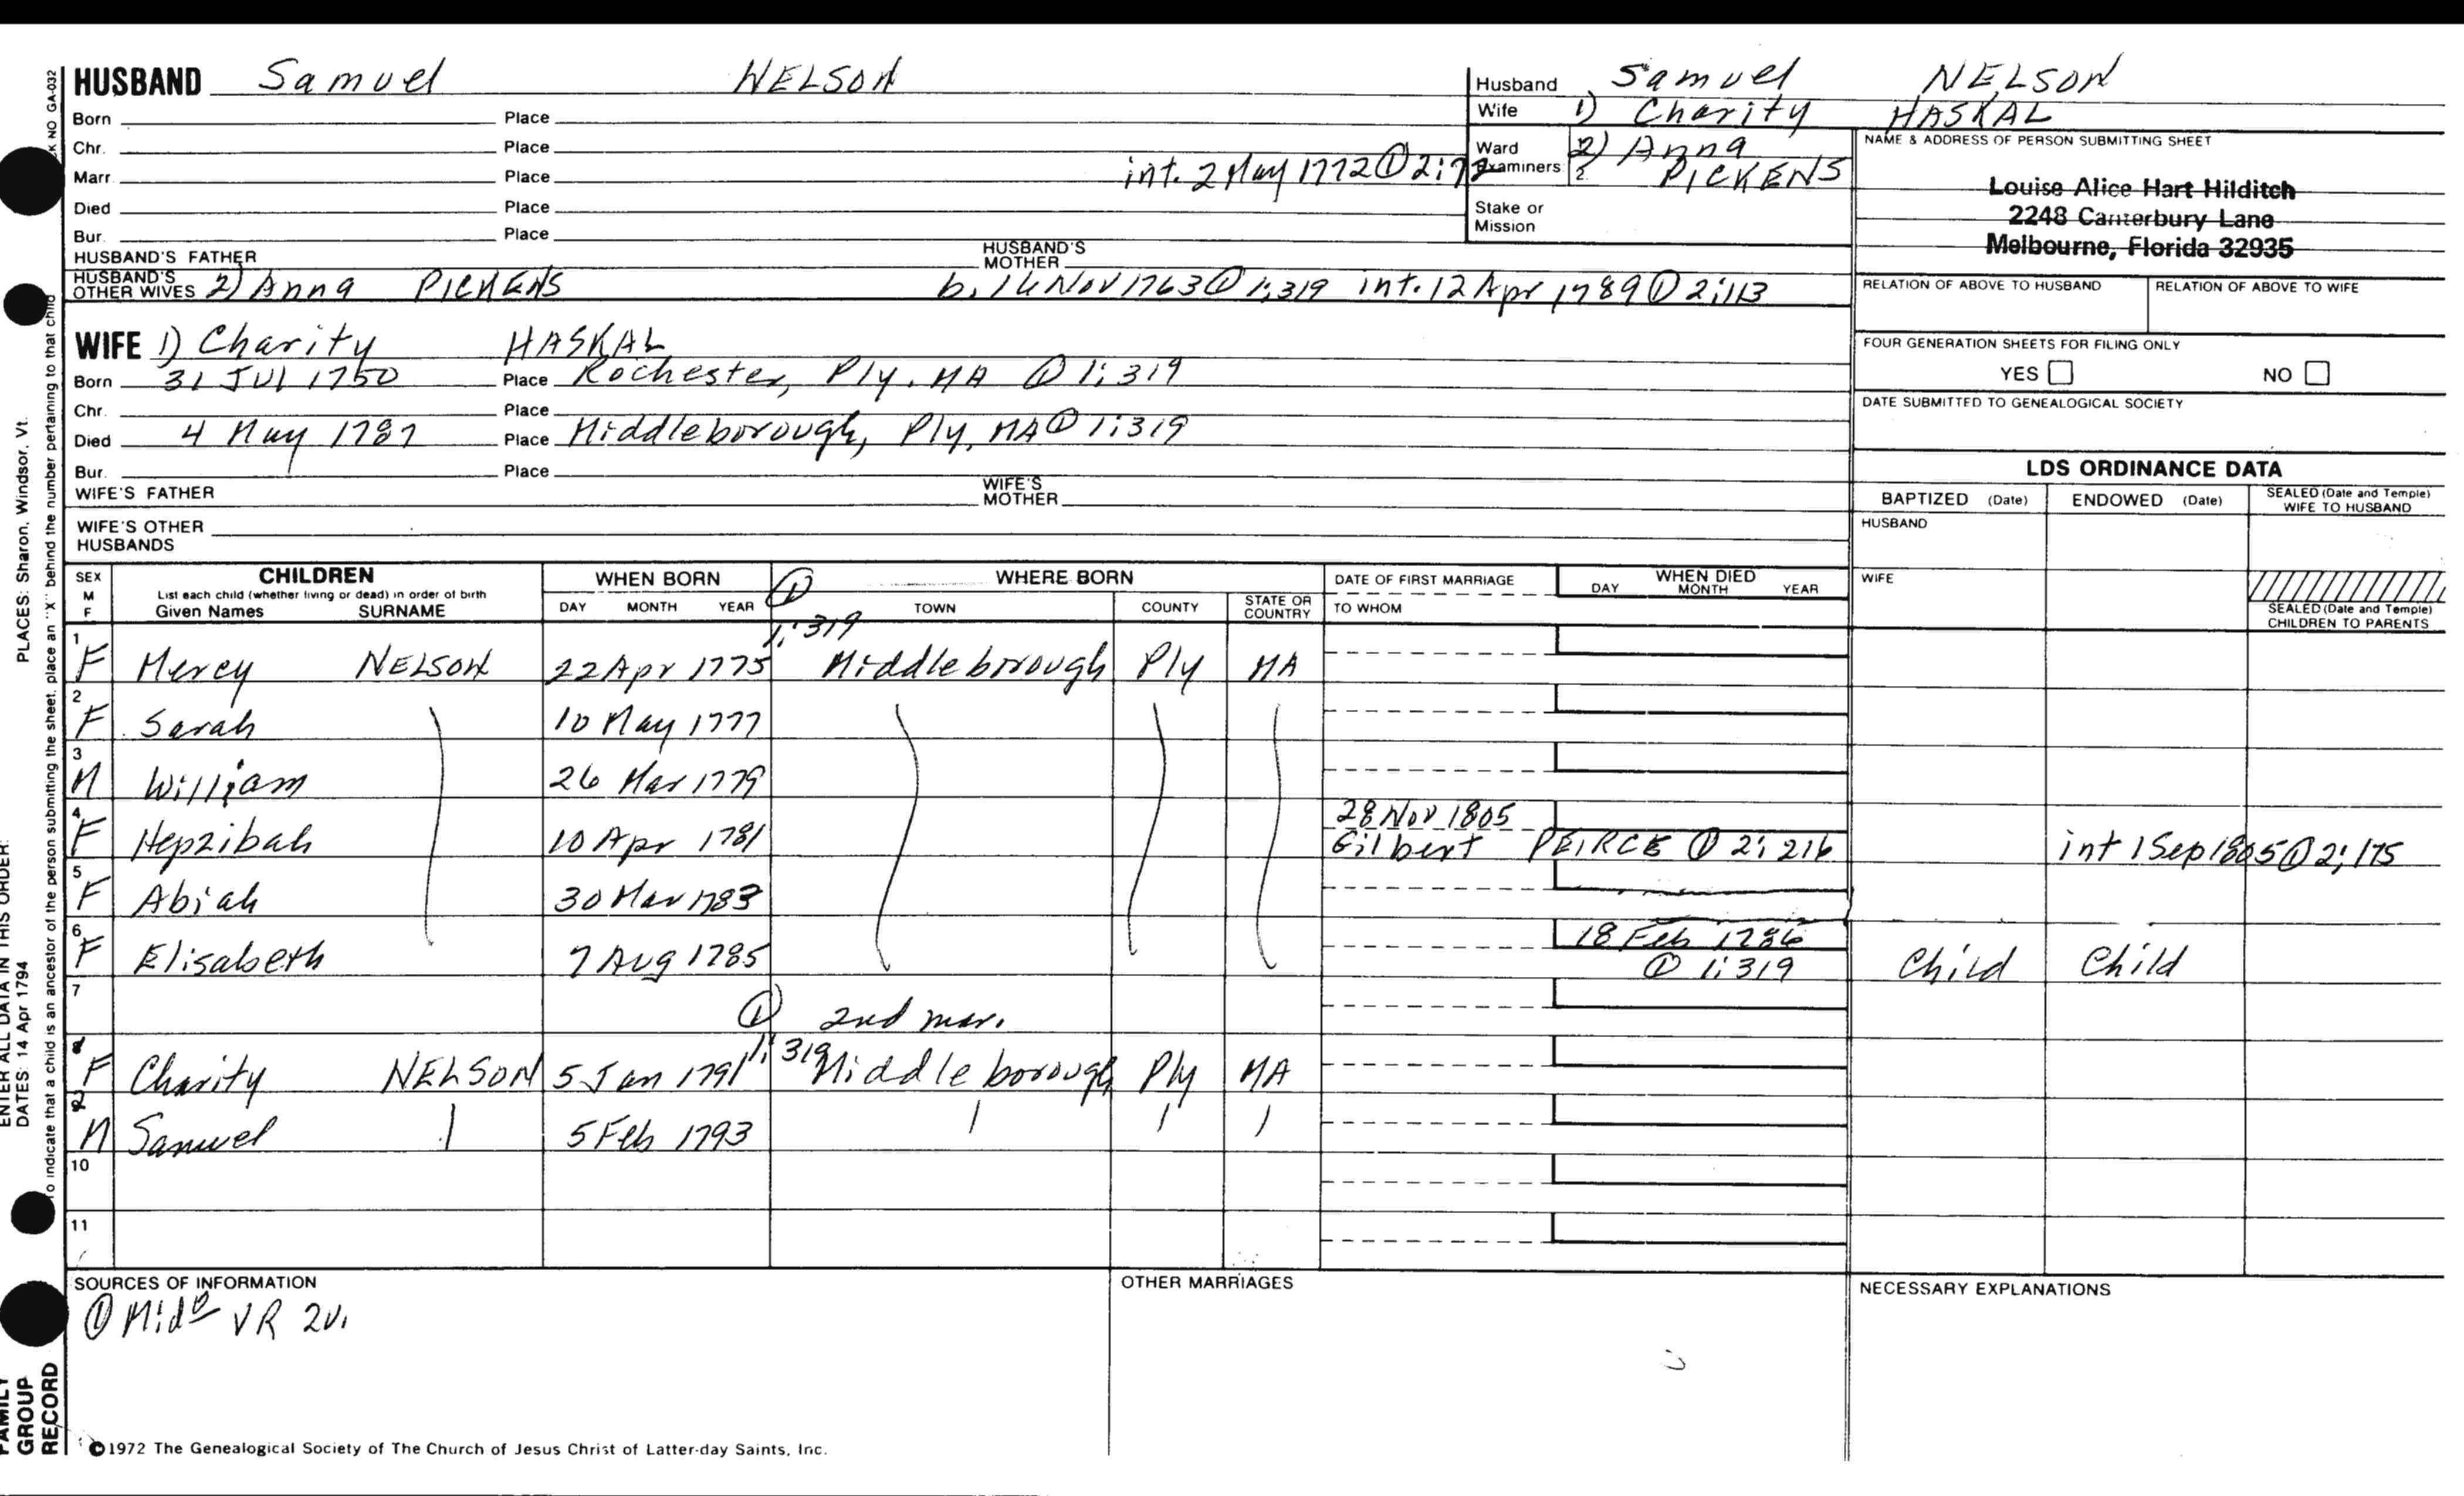 HUSBAND Samuel NELSON
Born Place
Chr. Place
Marr. Place int. 2 May 1772 ① 2:72
Died Place
Bur. Place
HUSBAND'S FATHER HUSBAND'S MOTHER
HUSBAND'S OTHER WIVES 2) Anna PICKENS b. 14 Nov 1763 ① 1:319 int. 12 Apr 1789 ① 2:113
WIFE 1) Charity HASKAL
Born 31 Jul 1750 Place Rochester, Ply. MA ① 1:319
Chr. Place
Died 4 May 1787 Place Middleborough, Ply, MA ① 1:319
Bur. Place
WIFE'S FATHER WIFE'S MOTHER
WIFE'S OTHER HUSBANDS
Husband Samuel NELSON
Wife 1) Charity HASKAL
Ward 2) Anna
Examiners: 2. PICKENS
Stake or Mission
NAME & ADDRESS OF PERSON SUBMITTING SHEET
Louise Alice Hart Hilditch
2248 Canterbury Lane
Melbourne, Florida 32935
RELATION OF ABOVE TO HUSBAND RELATION OF ABOVE TO WIFE
FOUR GENERATION SHEETS FOR FILING ONLY
YES NO
DATE SUBMITTED TO GENEALOGICAL SOCIETY
LDS ORDINANCE DATA
BAPTIZED (Date) ENDOWED (Date) SEALED (Date and Temple) WIFE TO HUSBAND
HUSBAND
WIFE
SEALED (Date and Temple) CHILDREN TO PARENTS
SEX M F
CHILDREN
List each child (whether living or dead) in order of birth
Given Names SURNAME
WHEN BORN
DAY MONTH YEAR
① 1:319
WHERE BORN
TOWN COUNTY STATE OR COUNTRY
DATE OF FIRST MARRIAGE
TO WHOM
WHEN DIED
DAY MONTH YEAR
1 F Mercy NELSON 22 Apr 1775 Middleborough Ply MA
2 F Sarah 10 May 1777
3 M William 26 Mar 1779
4 F Hepzibah 10 Apr 1781 28 Nov 1805
Gilbert PEIRCE ① 2:216 int 1 Sep 1805 ① 2:175
5 F Abiah 30 Mar 1783
6 F Elisabeth 7 Aug 1785 18 Feb 1786
① 1:319 Child Child
7 ① 2nd mar.
F Charity NELSON 5 Jan 1791 1:319 Middleborough Ply MA
2 M Samuel 5 Feb 1793
10
11
SOURCES OF INFORMATION
① Mido VR 2v.
OTHER MARRIAGES
NECESSARY EXPLANATIONS
©1972 The Genealogical Society of The Church of Jesus Christ of Latter-day Saints, Inc.
NO GA-032
PLACES: Sharon, Windsor, Vt.
To indicate that a child is an ancestor of the person submitting the sheet, place an "X" behind the number pertaining to that child
ENTER ALL DATA IN THIS ORDER:
DATES: 14 Apr 1794
FAMILY GROUP RECORD